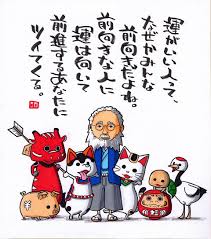 運がいい人って、
なぜかみんな
前向きだよね。
前向きな人に
運は向いて
前進するあなたに
ツイてくる。